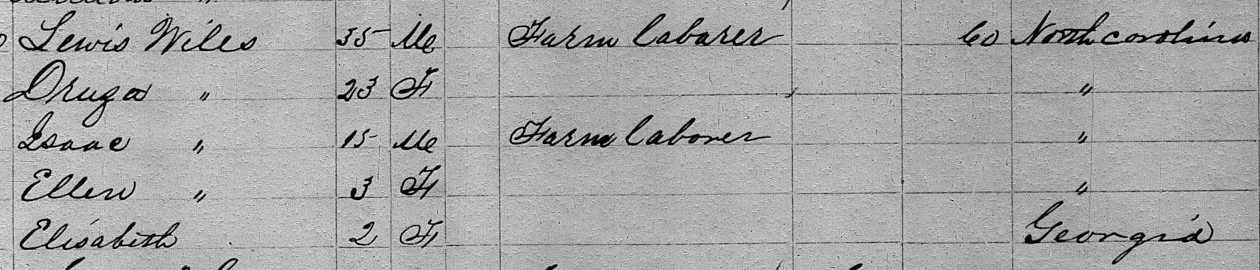 Lewis Wiles 35 M Farm Laborer 60 North Carolina
Druga " 23 F "
Isaac " 15 M Farm Laborer "
Ellen " 3 F "
Elisabeth 2 F Georgia